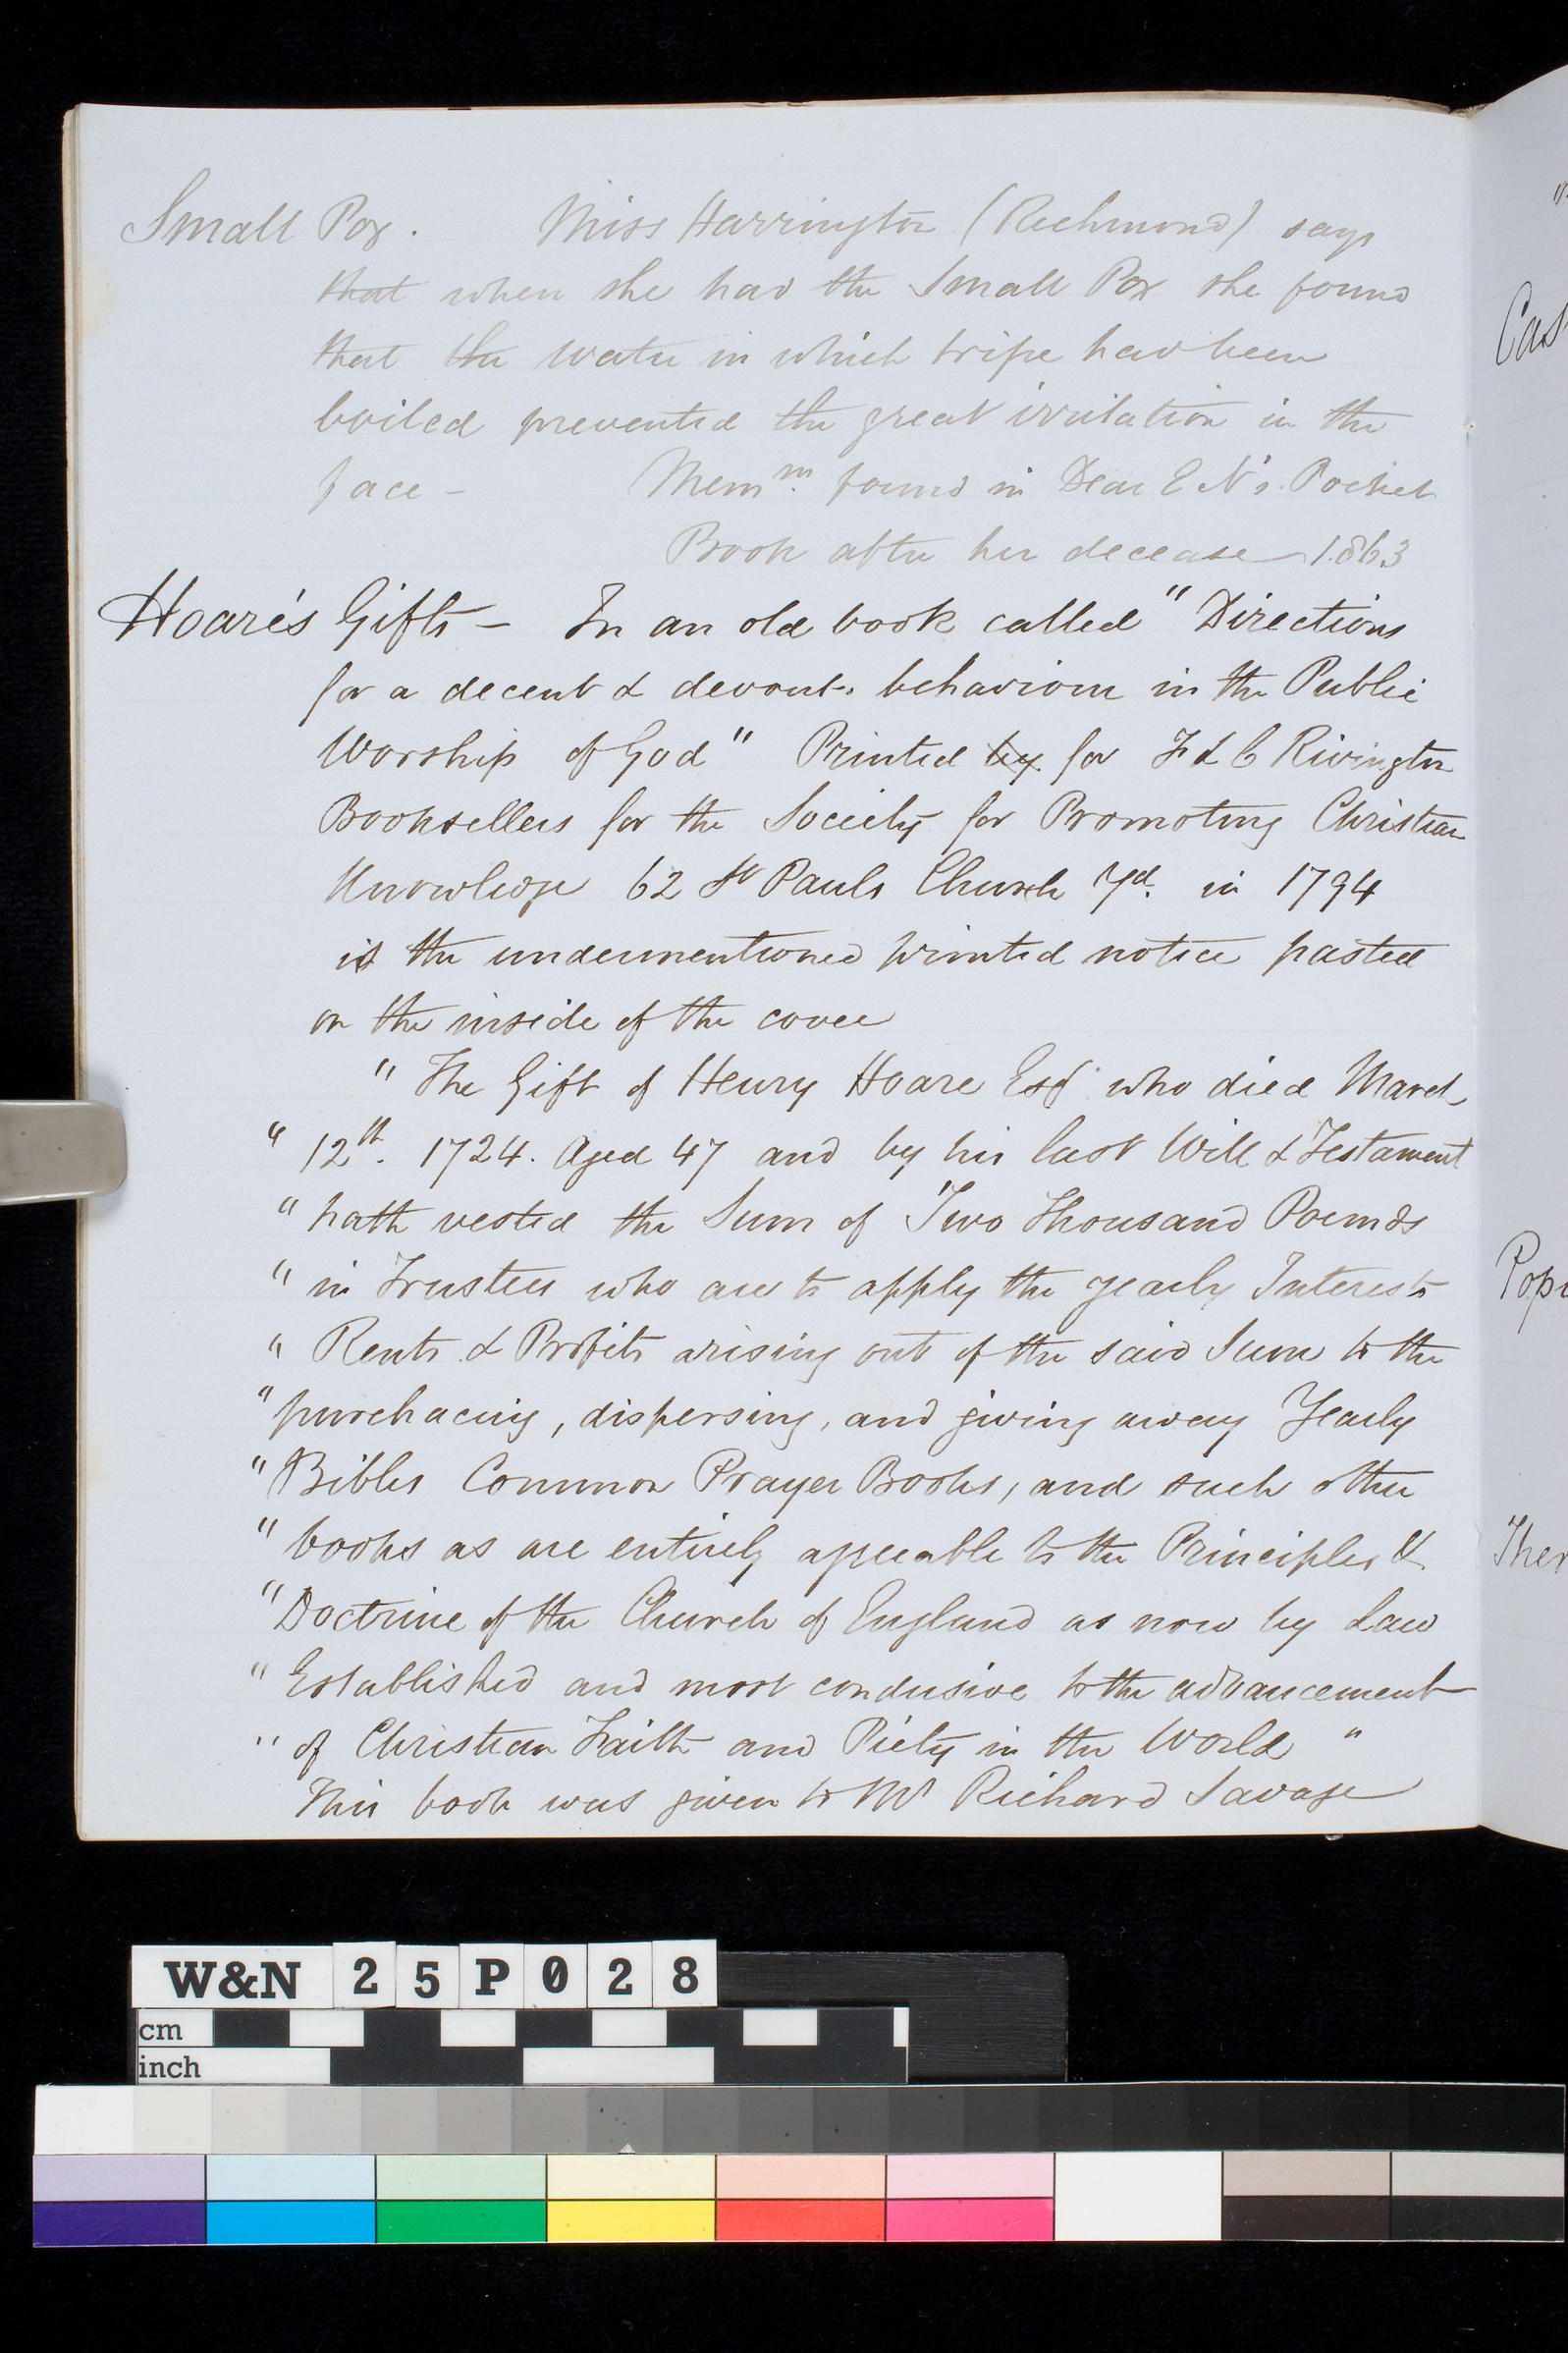 Small Pox. Miss Harrington (Richmond) says
that when she had the Small Pox she found
that the water in which tripe had been
boiled prevented the great irritation in the
face - Memm. found in Dear E N's. Pocket
Book after her decease 1.863
Hoare's Gifts - In an old book called "Directions
for a decent & devout. behaviour in the Public
Worship of God" Printed by for F & C Rivington
Booksellers for the Society for Promoting Christian
Knowledge 62 St Pauls Church Yd. in 1794
is the undermentioned printed notice pasted
on the inside of the cover
" The Gift of Henry Hoare Esq who died March
" 12th. 1724. Aged 47 and by his last Will & Testament
" hath vested the Sum of Two Thousand Pounds
" in Trustees who are to apply the yearly Interests
" Rents & Profits arising out of the said Sum to the
" purchacing, dispersing, and giving away Yearly
" Bibles Common Prayer Books, and such other
" books as are entirely agreeable to the Principles &
" Doctrine of the Church of England as now by Law
" Established and most condusive to the advancement
" of Christian Faith and Piety in the World "
This book was given to Mr Richard Savage
Cas
Pop
Ther
W&N 25P028
cm
inch